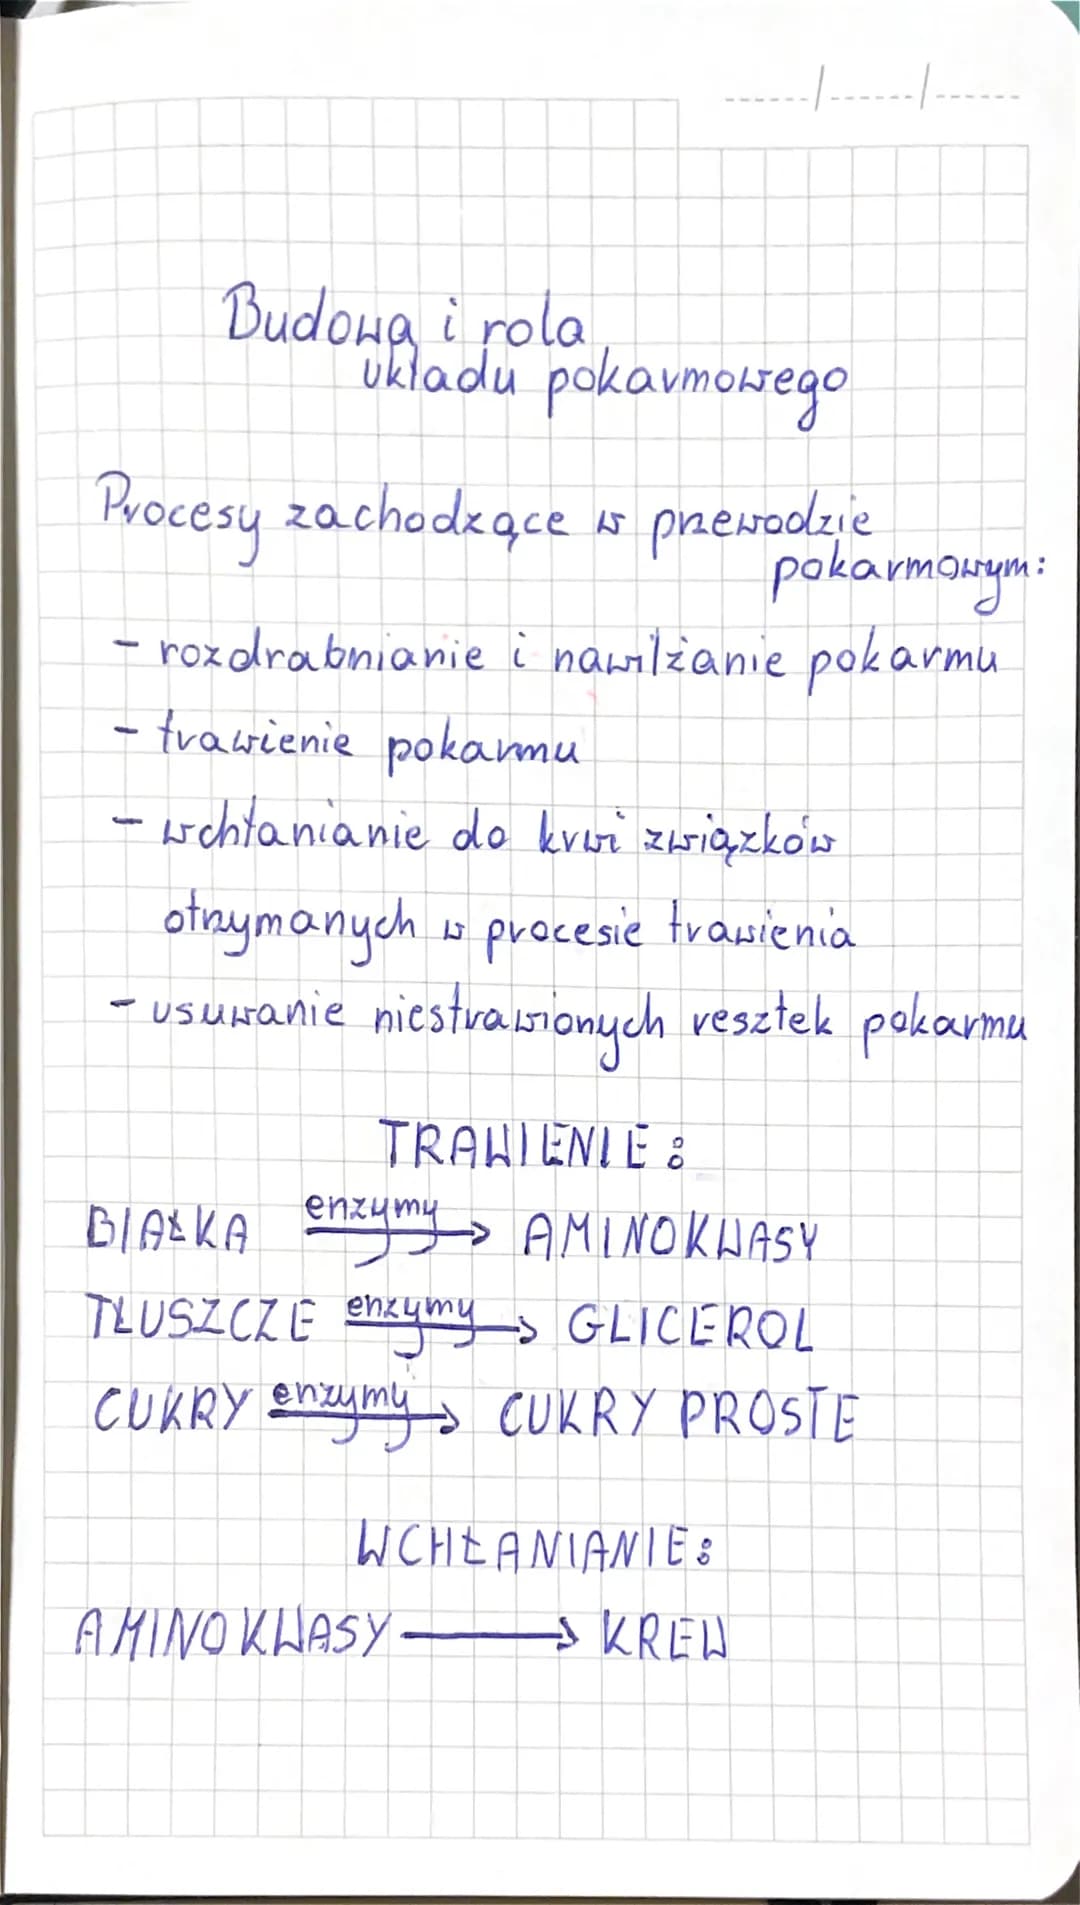 Budowa i rola
układu pokarmowego
Procesy zachodzące w przewodzie
pokarmowym:
- rozdrabnianie i nawilżanie pokarmu
- trawienie pokarmu
- wchłanianie do krwi związków
otrzymanych w procesie trawienia
- usuwanie niestrawionych resztek pokarmu
TRAWIENIE:
BIAŁKA enzymy → AMINOKWASY
TŁUSZCZE enzymy → GLICEROL
CUKRY enzymy → CUKRY PROSTE
WCHŁANIANIE:
AMINOKWASY → KREW